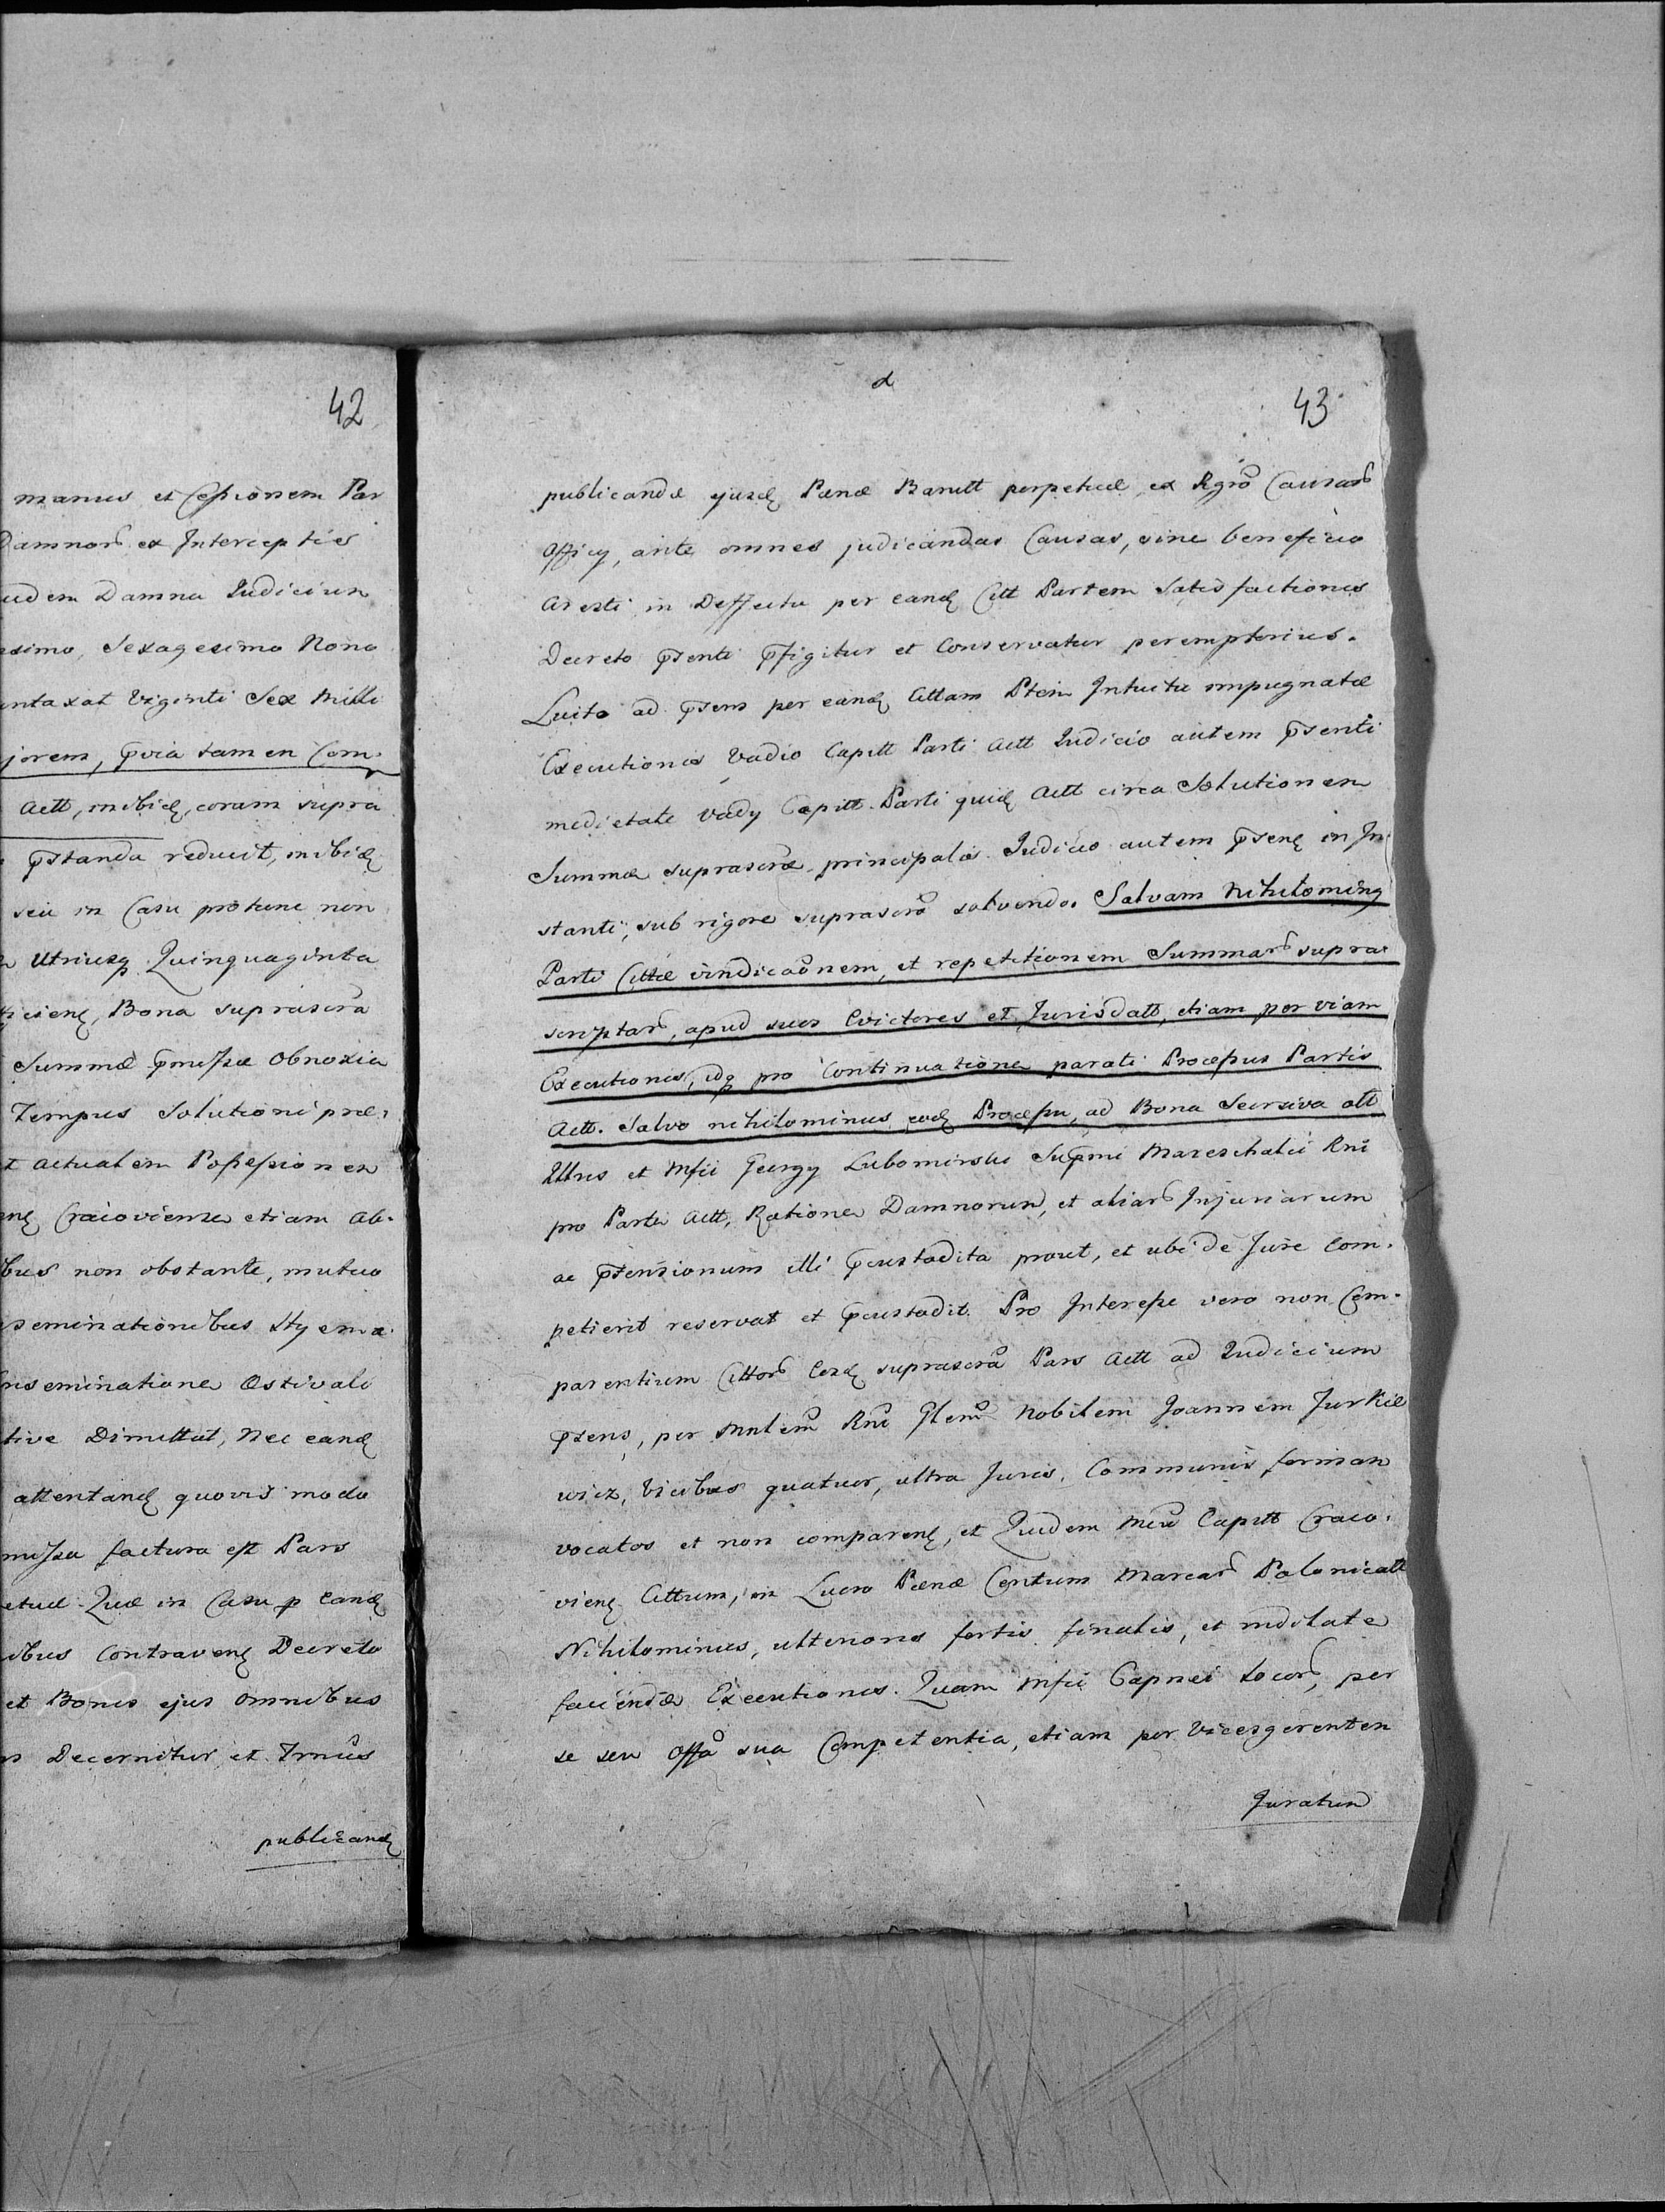 42
manus et Cessionem Par
Damnor et Intercepties
udem Damna Judicium
esimo, Sexagesimo Nono
ntaxat Viginti Sex Mille
jorem, quia tamen Com.
Actt, inibiq, coram supra
pstanda reducit, inibiq
seu in Casu protunc non
Utriusq Quinquaginta
Bona suprascra
Summæ pmissæ Obnoxia
Tempus Solutioni præ.
t actualem Possessionem
enq Cracoviense etiam ab.
bus non obstante, mutuo
seminationibus Hyema.
nseminatione Æstivali
tive Dimittat, Nec eandq
attentandq quovis modo
missa factura est Pars
etuæ. Quæ in Casu p Eandq
ibus Contravenq Decreto
et Bonis ejus omnibus
Decernitur et Trnus
publicandq
43
publicandæ ejusdq Pænæ Banitt perpetuæ ex Rgro Causar
Officy, ante omnes judicandas Causas, sine beneficio
Aresti in Deffectu per eandq Citt Partem Satisfactionis
Decreto psenti pfigitur et Conservatur peremptorius.
Luito ad psens per eandq Cittam Ptem Intuitu impugnatæ
Executionis Vadio Capitt Parti Actt Judicio autem psenti
medietate Vady Capitt. Parti quidq Actt circa Solutionem
Summæ suprascræ principalis Judicio autem psenq in In
stanti, sub rigore suprascro solvendo. Salvam Nihilominq
Parti Cittæ vindicaonem, et repetitionem Summar supra
scriptar, apud suos Evictores et Jurisdatt, etiam per viam
Executionis, idq pro Continuatione parati Processus Partis
Actt. Salvo nihilominus eodq Processu, ad Bona Seorsiva olt
Illtris et Mfii Georgy Lubomirski Supmi Mareschalii Rni
pro Parte Actt, Ratione Damnorum, et aliar Injuriarum
ac ptensionum illi pcustodita prout, et ubi de Jure Com.
petierit reservat et pcustodit. Pro Interesse vero non Com.
parentium Cittor Eordq suprascra Pars Actt ad Judicium
psens, per Mnlem Rni Glem Nobilem Joannem Jurkie
wicz, Vicibus quatuor, ultra Juris, Communis forman
vocatos et non comparenq, et Quidem Mcu Capitt Craco.
vienq Cittum, in Lucro Pænæ Centum Marcar Polonicatt
Nihilominus, ulterioris fortis finalis, et inditate
faciendæ Executionis. Quam Mfii Capnei Locor, per
se seu Offa sua Competentia, etiam per Vicesgerenten
Juratum